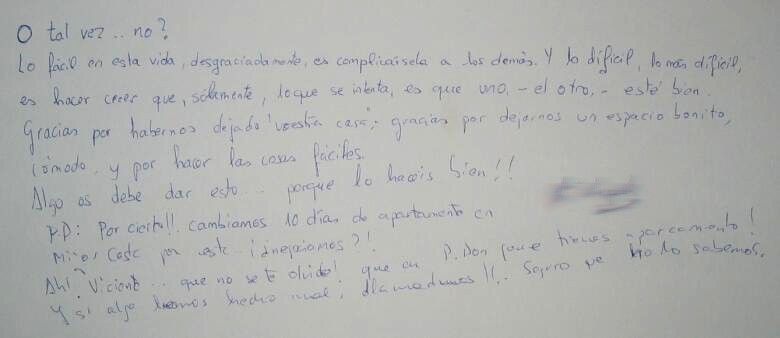 O tal vez .. no?
Lo fácil en esta vida, desgraciadamente, es complicársela a los demás. Y lo difícil, lo más difícil,
es hacer creer que, sólamente, lo que se intenta, es que uno, - el otro, - esté bien.
Gracias por habernos dejado "vuestra casa"; gracias por dejarnos un espacio bonito,
cómodo y por hacer las cosas fáciles.
Algo os debe dar esto... porque lo haceis bien!!
P.D: Por cierto!!. cambiamos 10 días de apartamento en
por este.. ¿¡negociamos?!
Ah! Vicient.. que no se te olvide! que en P. Don tienes aparcamiento!
Y si algo hemos hecho mal, llamadnos!!. Seguro que no lo sabemos.